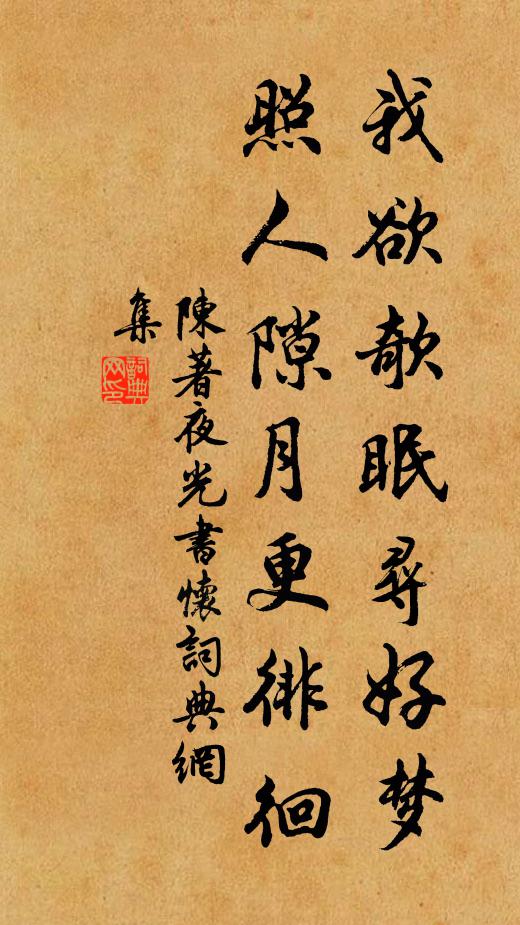 我欲欹眠尋好梦
照人隙月更徘徊
陳著夜光書懷詞典網
集
詞典
网印